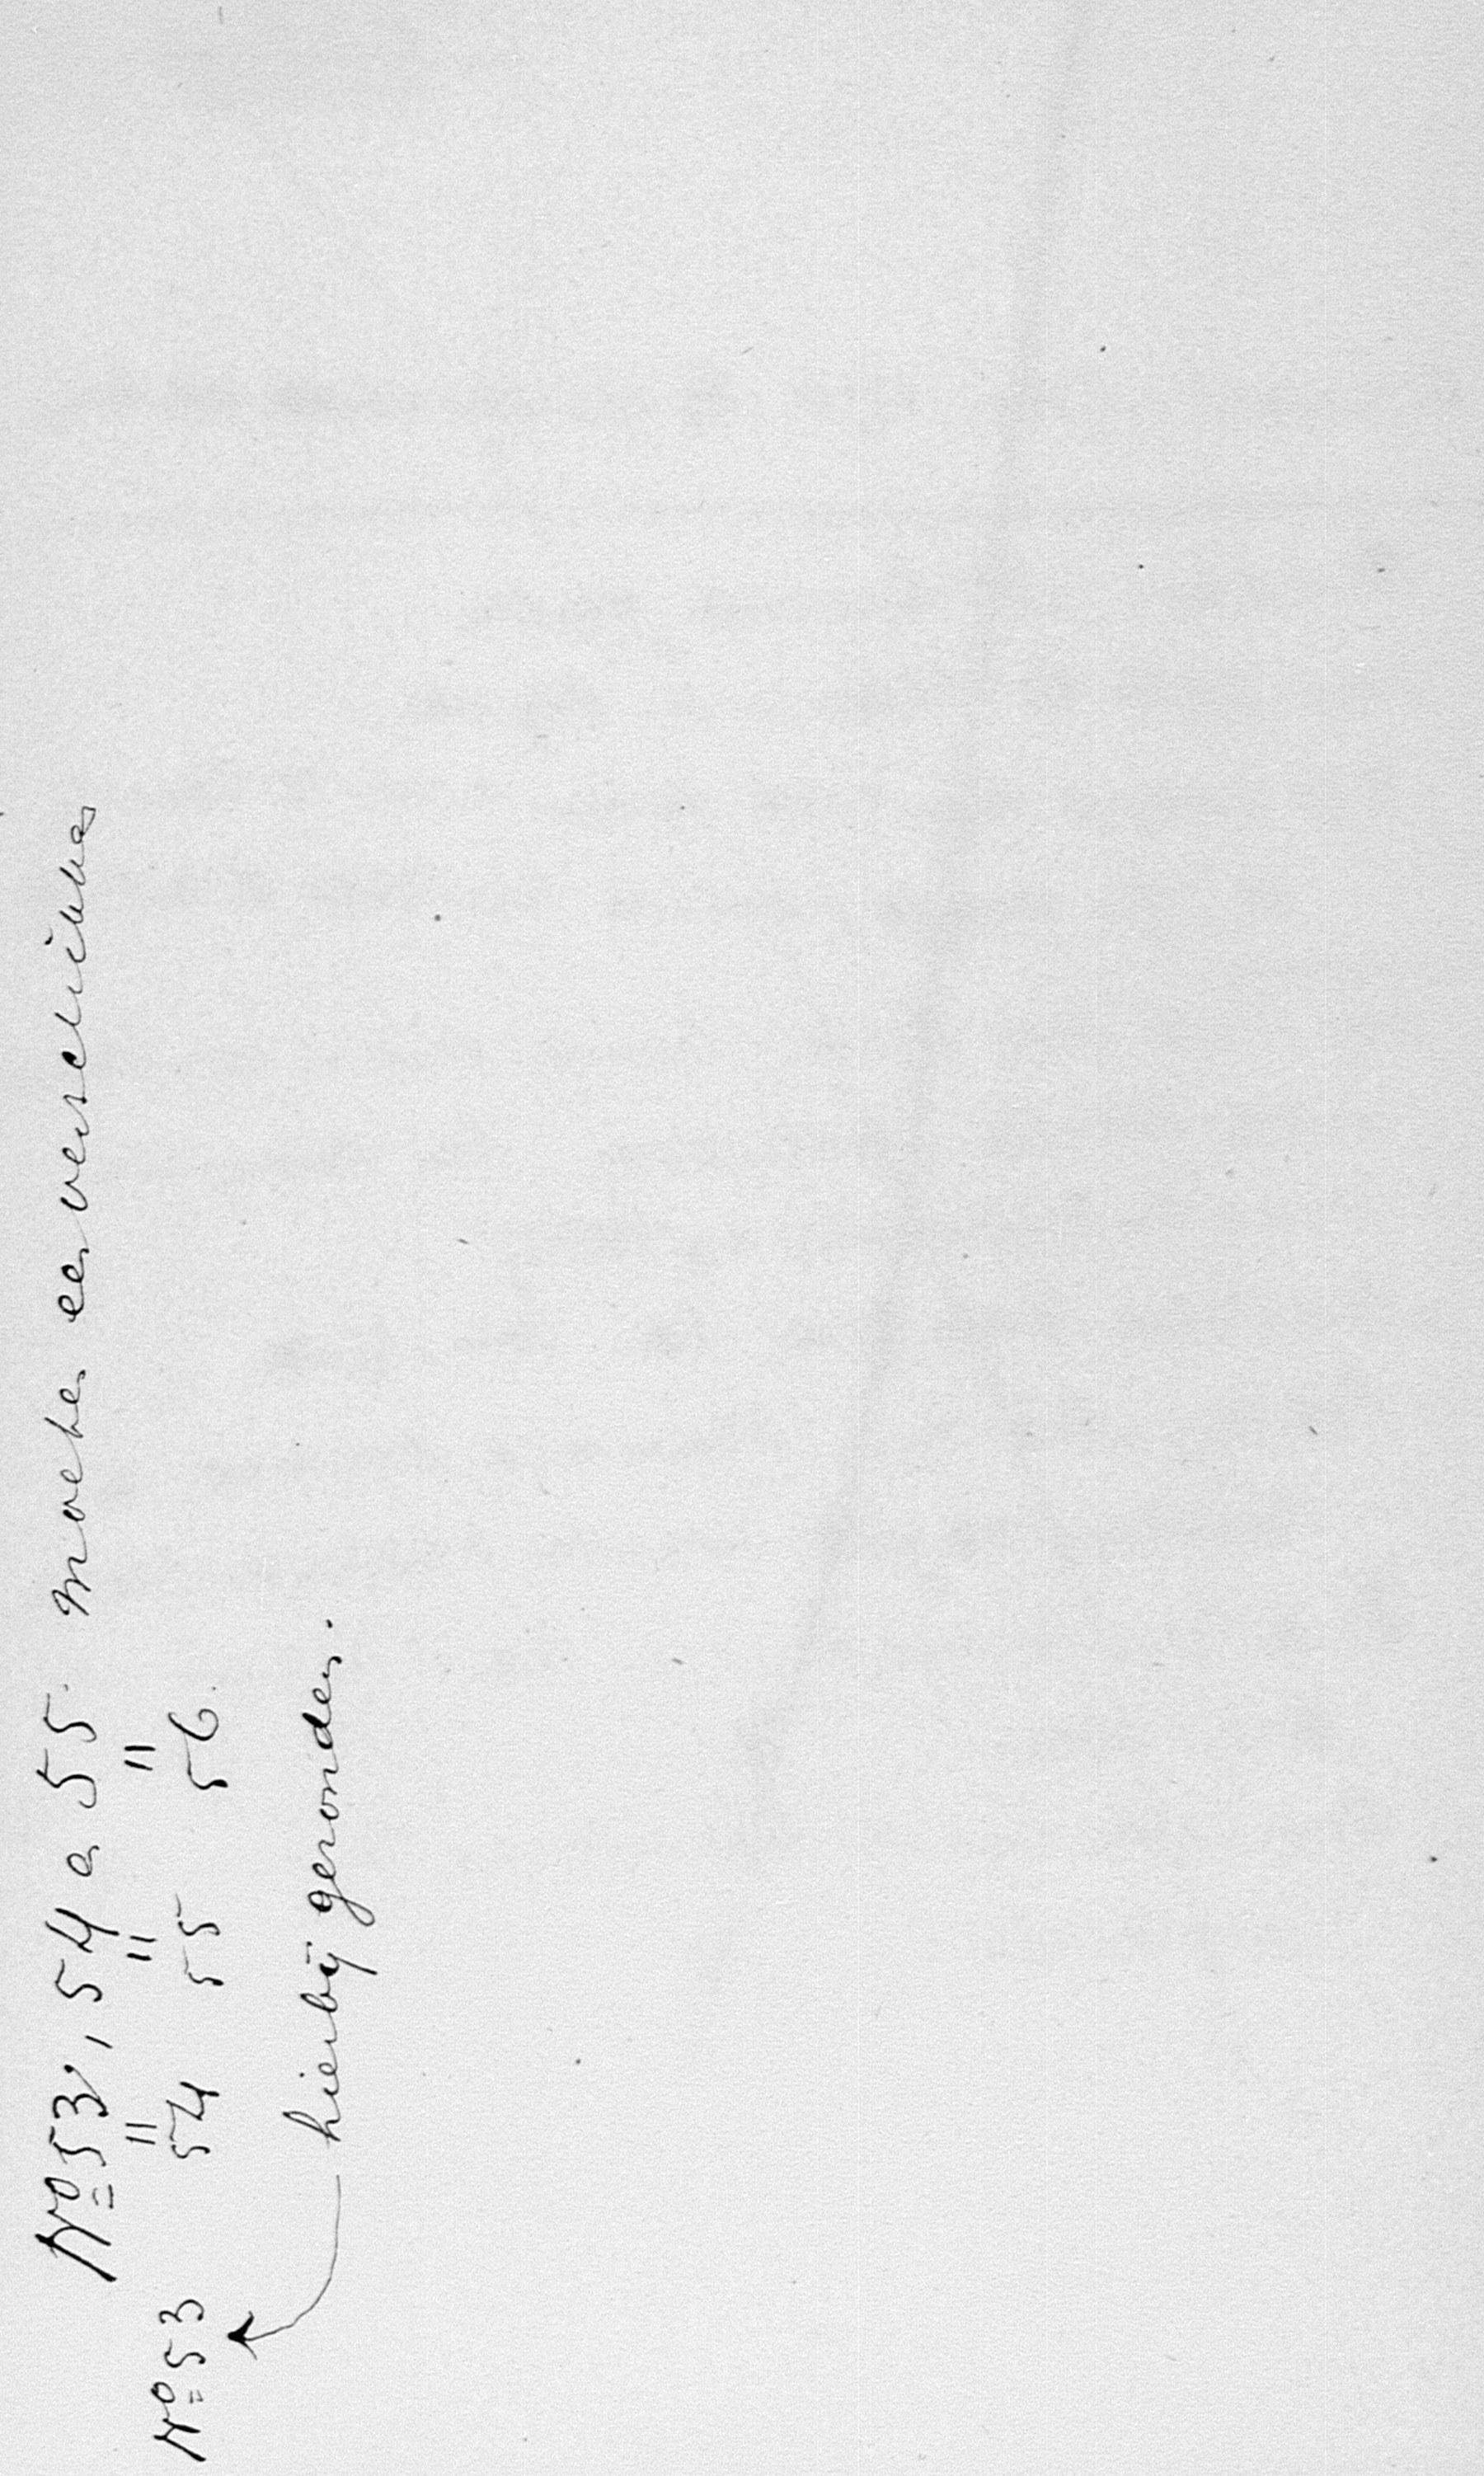 Nº 53, 54 a 55. moeten een verschikken
" " "
Nº 53 54 55 56.
hierbij gevonden.